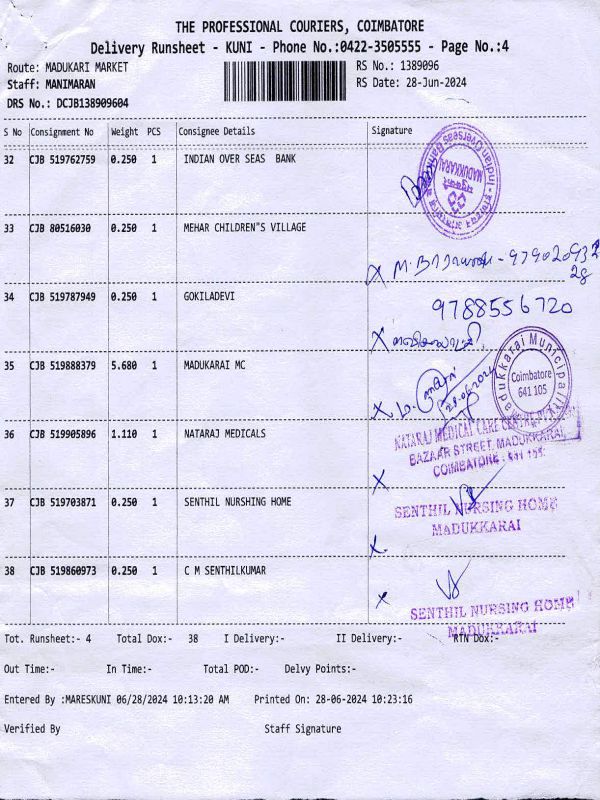 THE PROFESSIONAL COURIERS, COIMBATORE
Delivery Runsheet - KUNI - Phone No.:0422-3505555 - Page No.:4
Route: MADUKARI MARKET
RS No.: 1389096
Staff: MANIMARAN
RS Date: 28-Jun-2024
DRS No.: DCJB138909604
S No Consignment No Weight PCS Consignee Details Signature
32 CJB 519762759 0.250 1 INDIAN OVER SEAS BANK
Indian Overseas Bank
MADUKKARAI
33 CJB 80516030 0.250 1 MEHAR CHILDREN"S VILLAGE
34 CJB 519787949 0.250 1 GOKILADEVI
9788556720
35 CJB 519888379 5.680 1 MADUKARAI MC
28-06-2024
Madukkarai Municipality
Coimbatore
641 105
36 CJB 519905896 1.110 1 NATARAJ MEDICALS
NATARAJ MEDICAL CARE CENTRE
BAZAAR STREET, MADUKKARAI
COIMBATORE - 641 105
37 CJB 519703871 0.250 1 SENTHIL NURSHING HOME
SENTHIL NURSING HOME
MADUKKARAI
38 CJB 519860973 0.250 1 C M SENTHILKUMAR
SENTHIL NURSING HOME
MADUKKARAI
Tot. Runsheet:- 4 Total Dox:- 38 I Delivery:- II Delivery:- RTN Dox:-
Out Time:- In Time:- Total POD:- Delvy Points:-
Entered By :MARESKUNI 06/28/2024 10:13:20 AM Printed On: 28-06-2024 10:23:16
Verified By Staff Signature